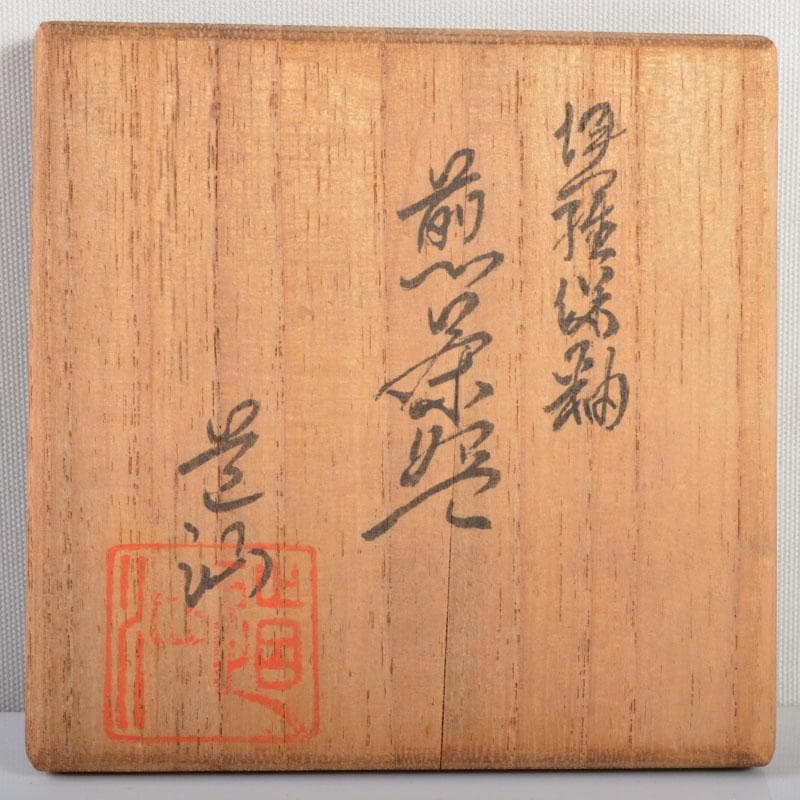 伊羅保釉
煎茶碗